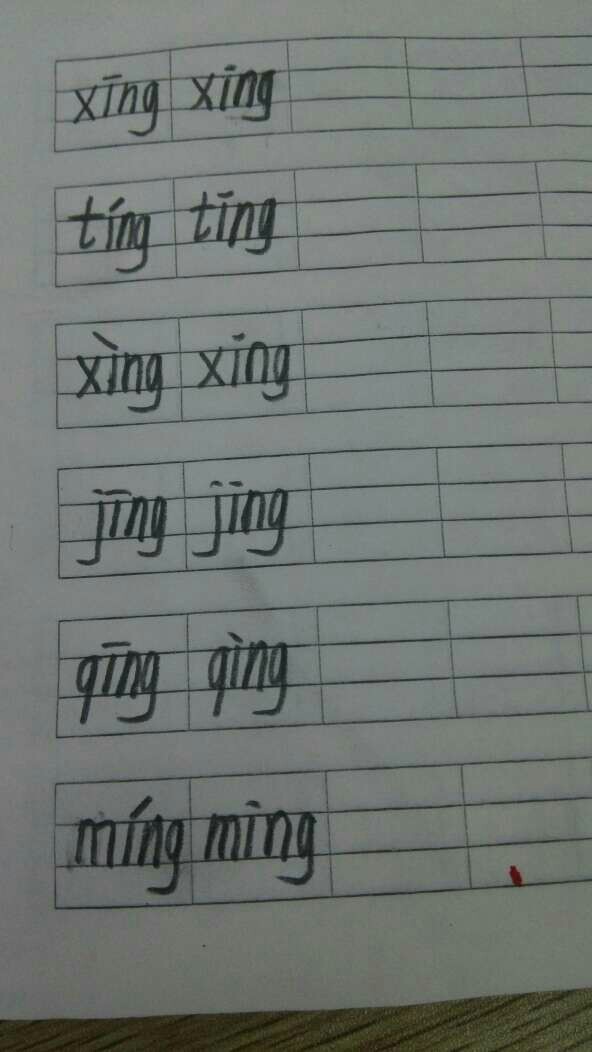 xīng xīng
tíng tīng
xìng xīng
jīng jīng
qīng qìng
míng mìng